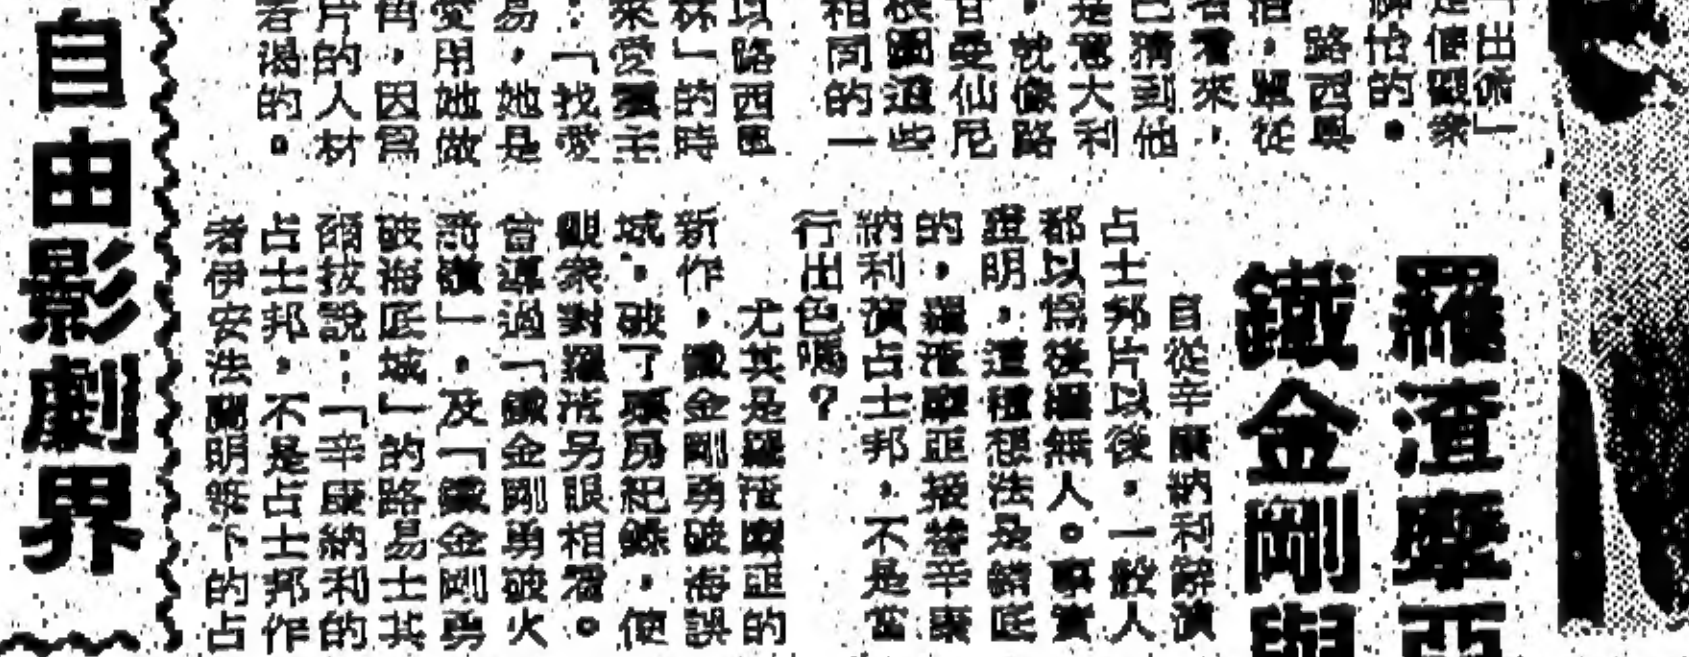 出術」
是使觀衆
怡的。
路西奧
，單從
看來，
已猜到他
是意大利
，就像路
曼仙尼
這些
相同的一
以路西奧
林」的時
來愛主
：「找愛
易，她是
愛用她做
角，因爲
片的人材
者渴的。
羅渣摩亞
鐵金剛與
自從辛康納利辭演
占士邦片以後，一般人
都以爲後繼無人。事實
證明，這種想法及終底
的，羅渣摩亞接替辛康
納利演占士邦，不是當
行出色嗎？
尤其是羅渣摩亞的
新作，鐵金剛勇破海誤
城，破了票房紀錄，使
觀衆對羅渣另眼相看。
曾導過「鐵金剛勇破火
箭嶺」，及「鐵金剛勇
破海底城」的路易士其
爾技說：「辛康納利的
占士邦，不是占士邦作
者伊安法蘭明筆下的占
自由影劇界